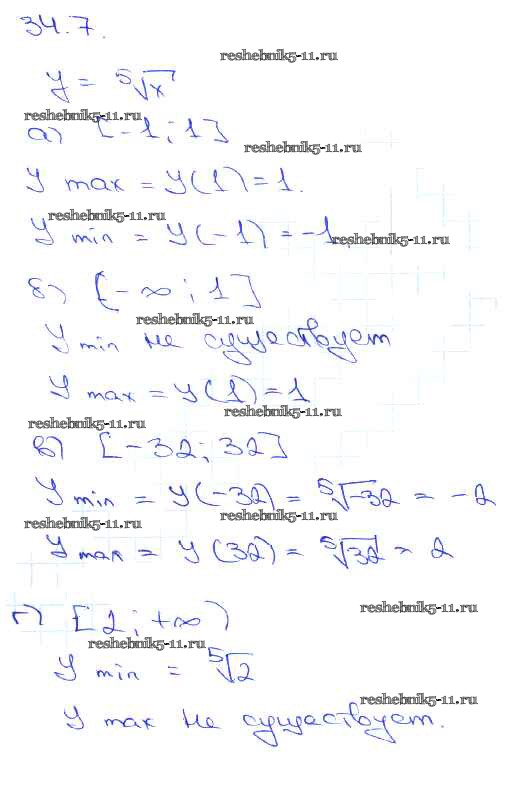 34.7.
reshebnik5-11.ru
y = ⁵√x
reshebnik5-11.ru
а) [-1; 1]
reshebnik5-11.ru
y max = y(1) = 1.
reshebnik5-11.ru
y min = y(-1) = -1
reshebnik5-11.ru
б) [-∞; 1]
reshebnik5-11.ru
y min не существует
y max = y(1) = 1
reshebnik5-11.ru
reshebnik5-11.ru
в) [-32; 32]
y min = y(-32) = ⁵√-32 = -2
reshebnik5-11.ru
reshebnik5-11.ru
y max = y(32) = ⁵√32 = 2
reshebnik5-11.ru
г) [2; +∞)
reshebnik5-11.ru
y min = ⁵√2
reshebnik5-11.ru
y max не существует.